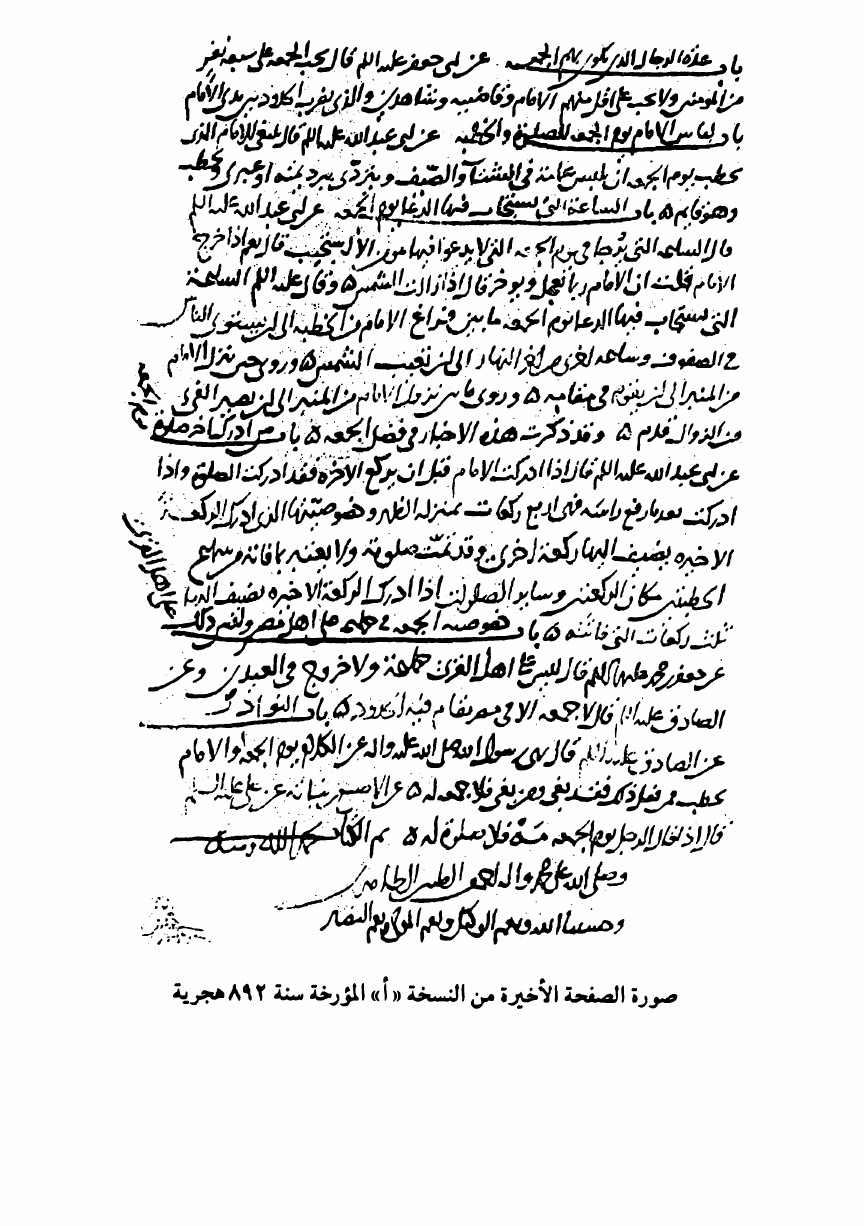 باب عدة الرجال الذين يكون بهم الجمعة عن ابى جعفر عليه السلم قال تجب الجمعة على سبعة نفر
من المؤمنين ولا تجب على اقل منهم الامام وقاضيه وشاهدين والذى يضرب الحدود بين يدى الامام
باب لباس الامام يوم الجمعة للصلوة والخطبة عن ابى عبد الله عليه السلم قال ينبغى للامام الذى
يخطب يوم الجمعة ان يلبس عمامة فى الشتآ والصّيف ويتردّى ببرد يمنه او عبرى ويخطب
وهو قايم ه باب الساعة التى يستجاب فيها الدعا يوم الجمعة عن ابى عبد الله عليه السلم
قال الساعة التى يرجا فى يوم الجمعة التى لا يدعوا فيها مومن الا استجيب قال نعم اذا خرج
الامام قلت ان الامام ربما يعجل ويوخر قال اذا زالت الشمس ه وقال عليه السلم الساعة
التى يستجاب فيها الدعا يوم الجمعة ما بين فراغ الامام من الخطبة الى ان يستوى الناس
فى الصفوف وساعة اخرى من اخر النهار الى ان تغيب الشمس ه وروى حين نزل الامام
من المنبر الى ان يقوم فى مقامه ه وروى ما بين نزول الامام من المنبر الى ان يصير الفئ
من الزوال قدم ه وقد ذكرت هذه الاخبار فى فضل الجمعة ه باب من ادرك اخر صلوة
يوم الجمعة
عن ابى عبد الله عليه السلم قال اذا ادركت الامام قبل ان يركع الاخرة فقد ادركت الصلوة واذا
ادركت بعد ما رفع راسه فهى اربع ركعات بمنزلة الظهر وخصوصيتها الذى ادرك الركعة
الاخيرة يضيف اليها ركعة اخرى وقد تمت صلوته ولا يعتبر بما فاته من سماع
الخطبتين مكان الركعتين وساير الصلوات اذا ادرك الركعة الاخيرة يضيف اليها
ثلث ركعات التى فاتته ه باب خصوصية الجمعة على اهل مصر وغير ذلك
على اهل القرى
عن جعفر بن محمد عليهما السلم قال ليس على اهل القرى جماعة ولا خروج فى العيدين وعن
الصادق عليه السلم قال لا جمعة الا فى مصر يقام فيه الحدود ه باب النوادر
عن الصادق عليه السلم قال نهى رسول الله صلى الله عليه واله عن الكلام يوم الجمعة والامام
يخطب فمن فعل ذلك فقد لغى ومن لغى فلا جمعة له ه عن الاصبغ بن نباتة عن على عليه السلم
قال اذا قال الرجل يوم الجمعة صه فلا صلوة له ه تم الكتاب بحمد الله ومنه
وصلى الله على محمد واله اجمعين الطيبين الطاهرين
وحسبنا الله ونعم الوكيل ونعم المولى ونعم النصير
صورة الصفحة الأخيرة من النسخة «أ» المؤرخة سنة ٨٩٢ هجرية